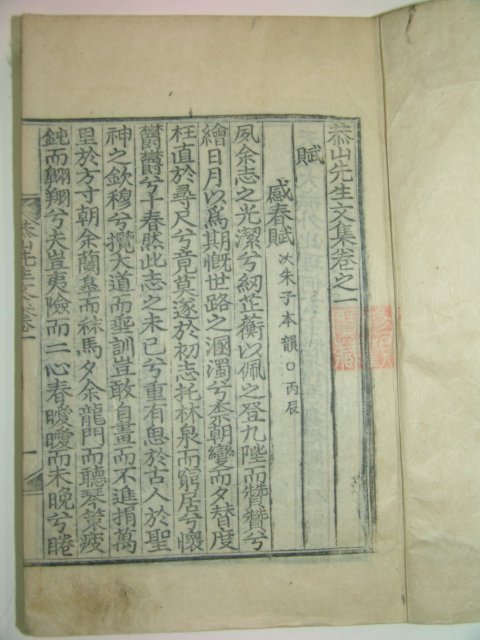 恭山先生文集卷之一
賦
感春賦 次朱子本韻○丙辰
夙余志之光潔兮紉芷蘅以佩之登九陛而贊贊兮
繪日月以爲期慨世路之溷濁兮柰朝變而夕替度
枉直於尋尺兮竟莫遂於初志托林泉而窮居兮懷
欝欝兮千春然此志之未已兮重有思於古人於聖
神之欽穆兮攬大道而垂訓豈敢自畫而不進捐萬
里於方寸朝余蘭臯而秣馬夕余龍門而聽琴策疲
鈍而翺翔兮夫豈夷險而二心春曖曖而未晩兮睠